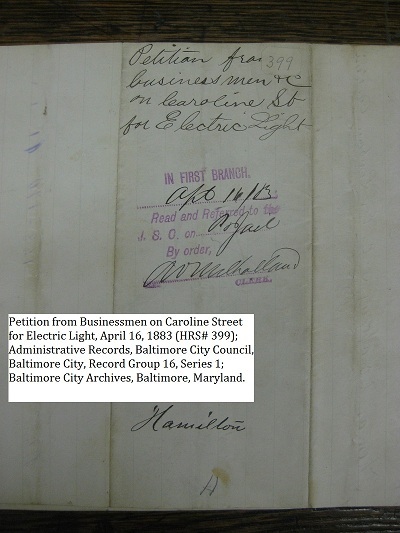 Petition from 399
business men &c
on Caroline St
for Electric Light
IN FIRST BRANCH,
Apl 16/83
Read and Referred to the
J. S. C. on Po & Jail
By order,
A V Milholland
CLERK.
Petition from Businessmen on Caroline Street
for Electric Light, April 16, 1883 (HRS# 399);
Administrative Records, Baltimore City Council,
Baltimore City, Record Group 16, Series 1;
Baltimore City Archives, Baltimore, Maryland.
Hamilton